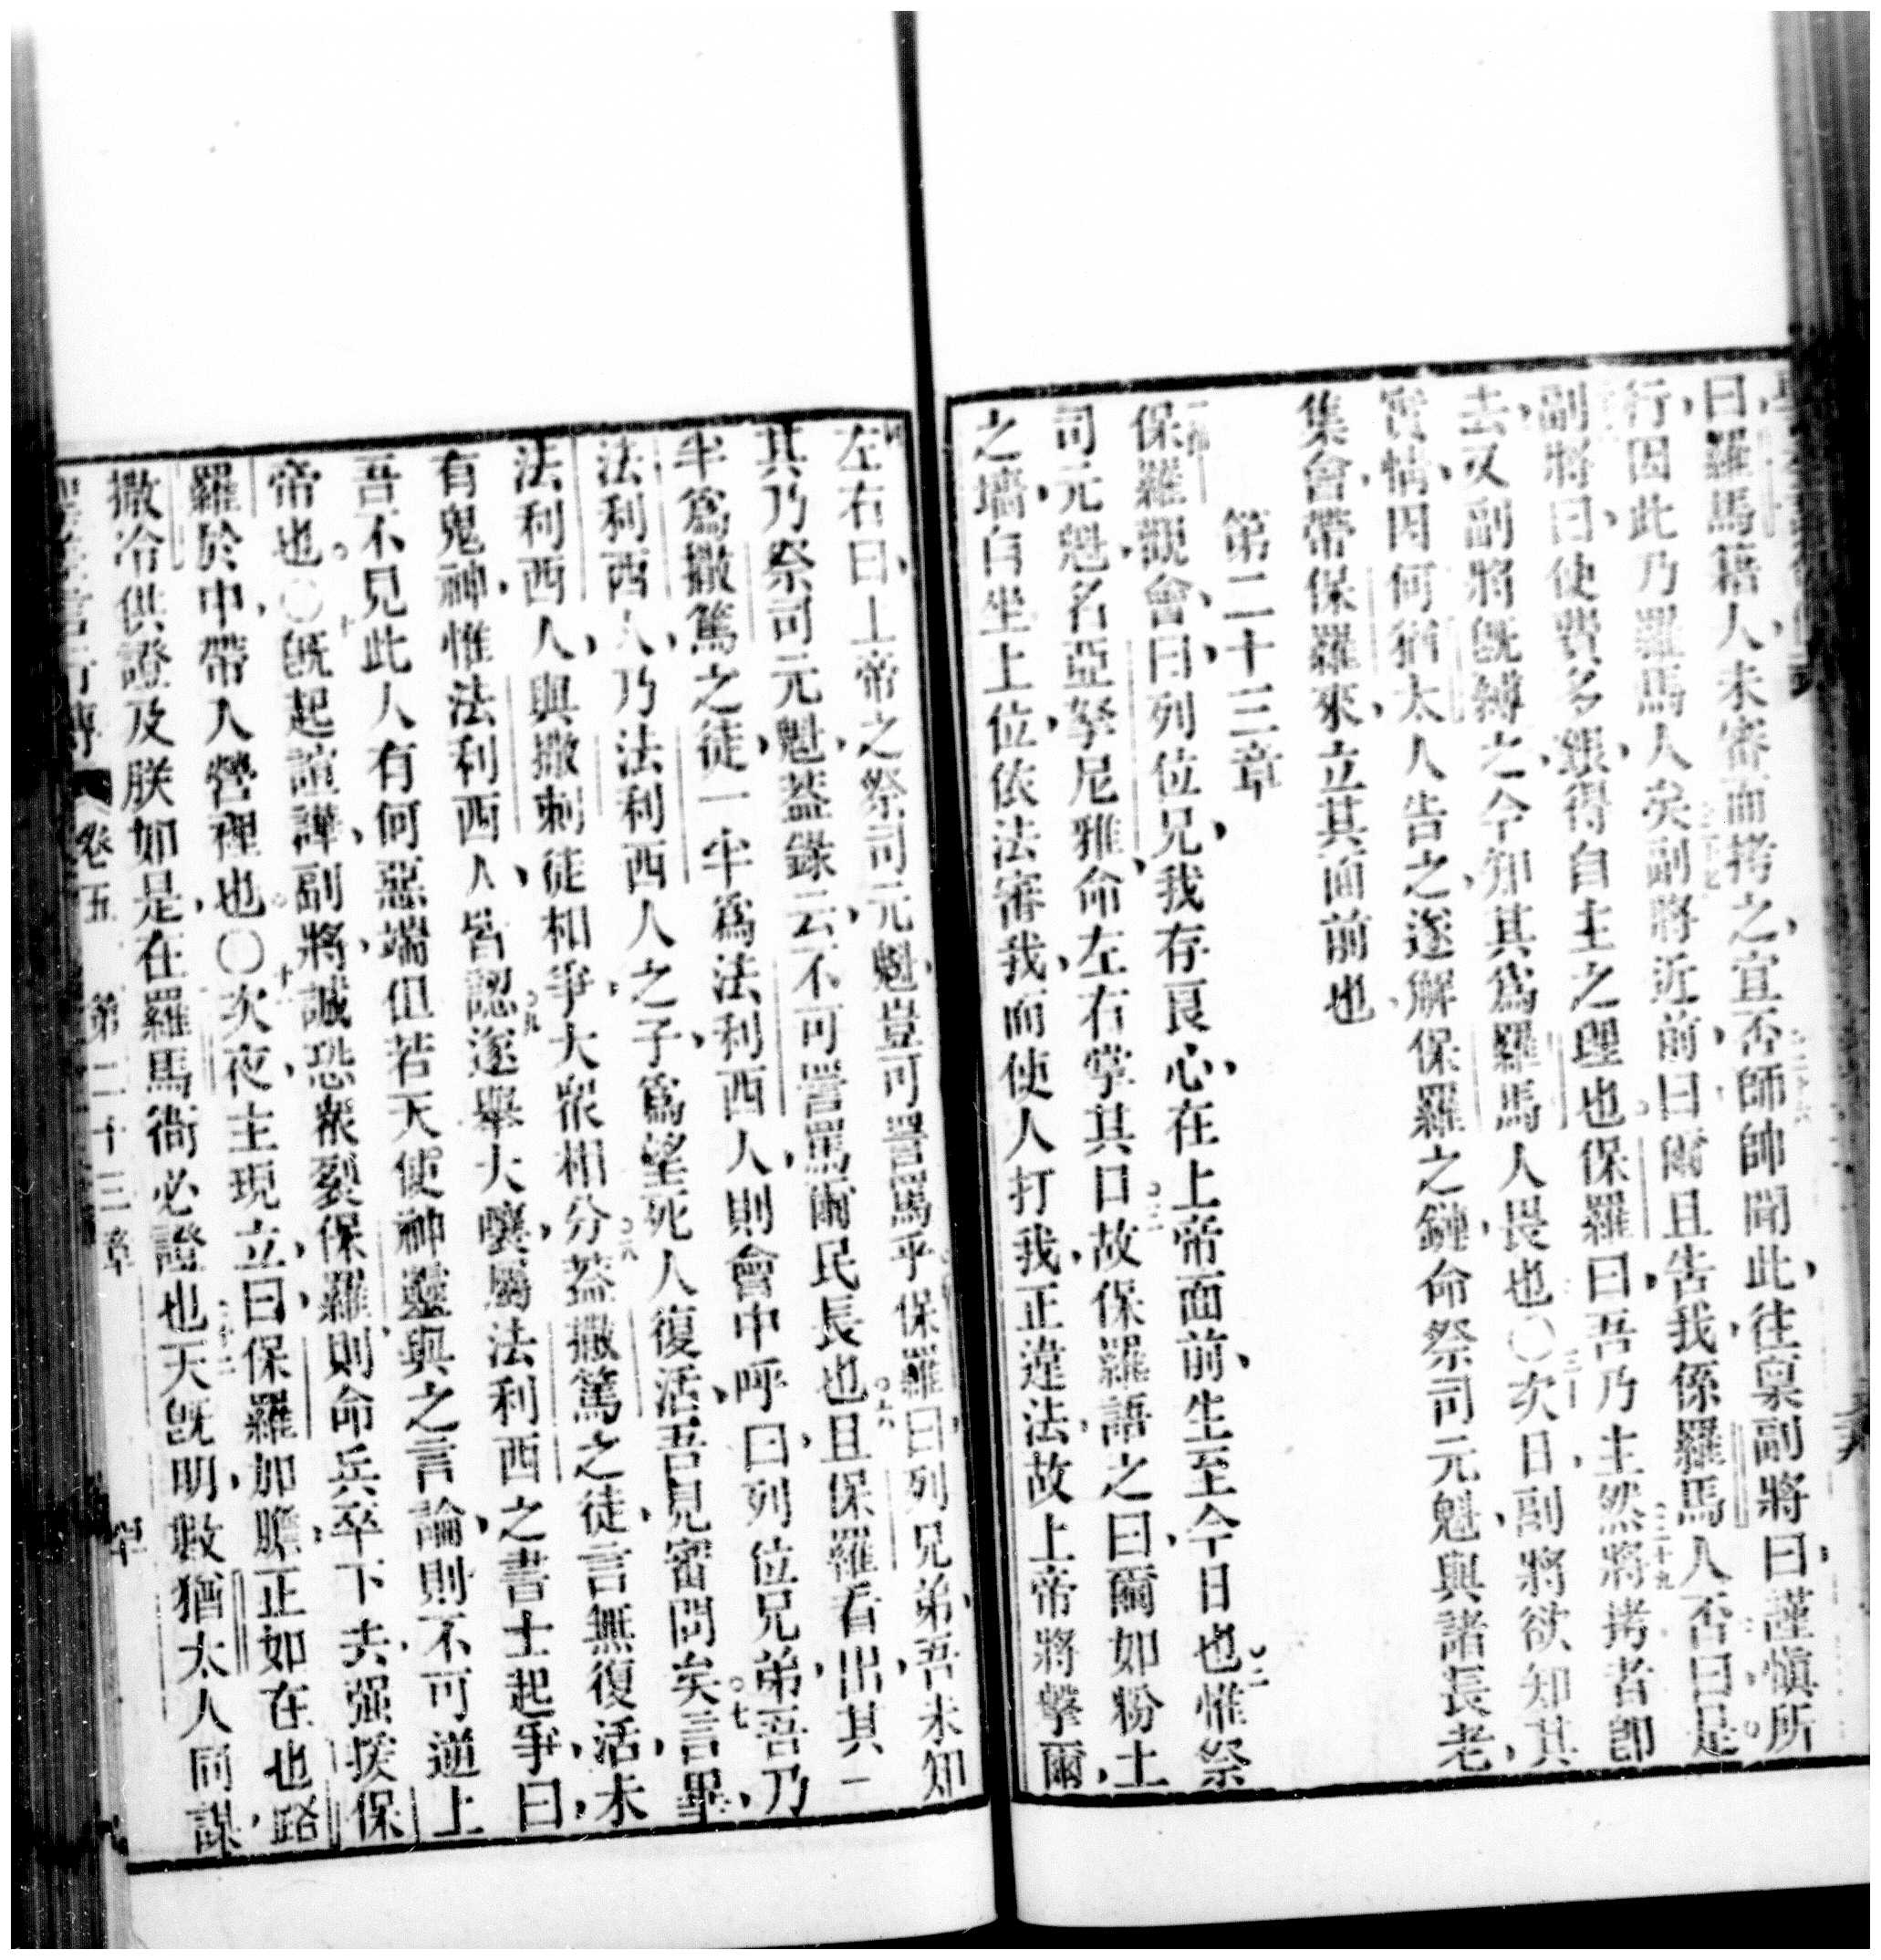 曰羅馬籍人未審而拷之宜否師帥聞此往稟副將曰謹愼所
行因此乃羅馬人矣副將近前曰爾且告我係羅馬人否曰是
副將曰使費多銀得自主之理也保羅曰吾乃主然將拷者卽
去又副將旣縛之今知其爲羅馬人畏也〇次日副將欲知其
實情因何猶太人告之遂解保羅之鏈命祭司元魁與諸長老
集會帶保羅來立其面前也
第二十三章
保羅觀會曰列位兄我存良心在上帝面前生至今日也惟祭
司元魁名亞拏尼雅命左右掌其口故保羅語之曰爾如粉土
之墻自坐上位依法審我而使人打我正違法故上帝將擊爾
左右曰上帝之祭司元魁豈可詈罵乎保羅曰列兄弟吾未知
其乃祭司元魁葢錄云不可詈罵爾民長也且保羅看出其一
半爲撒篤之徒一半爲法利西人則會中呼曰列位兄弟吾乃
法利西人乃法利西人之子爲望死人復活吾見審問矣言畢
法利西人與撒刺徒相爭大衆相分葢撒篤之徒言無復活未
有鬼神惟法利西人皆認遂舉大嚷屬法利西之書士起爭曰
吾不見此人有何惡端但若天使神靈與之言論則不可逆上
帝也〇旣起諠譁副將誠恐衆裂保羅則命兵卒下去强挨保
羅於中帶入營裡也〇次夜主現立曰保羅加膽正如在也路
撒冷供證及朕如是在羅馬衙必證也天旣明數猶太人同謀
卷五 第二十三章